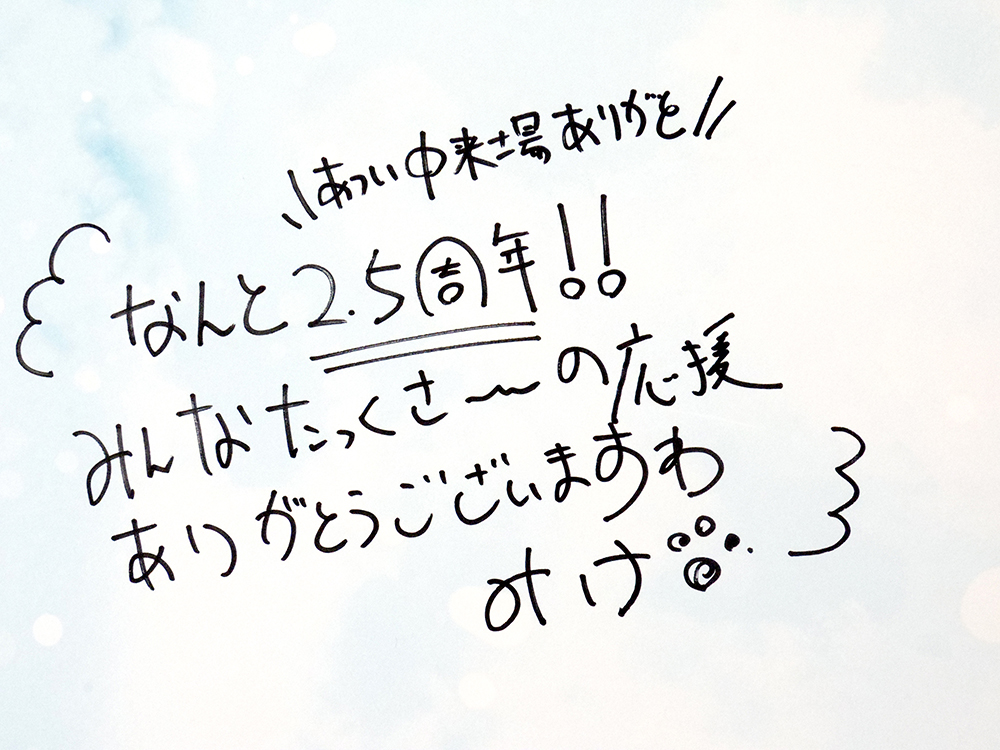 \\あつい中来場ありがと//
なんと2.5周年!!
みんなたっくさ〜の応援
ありがとうございますわ
みけ